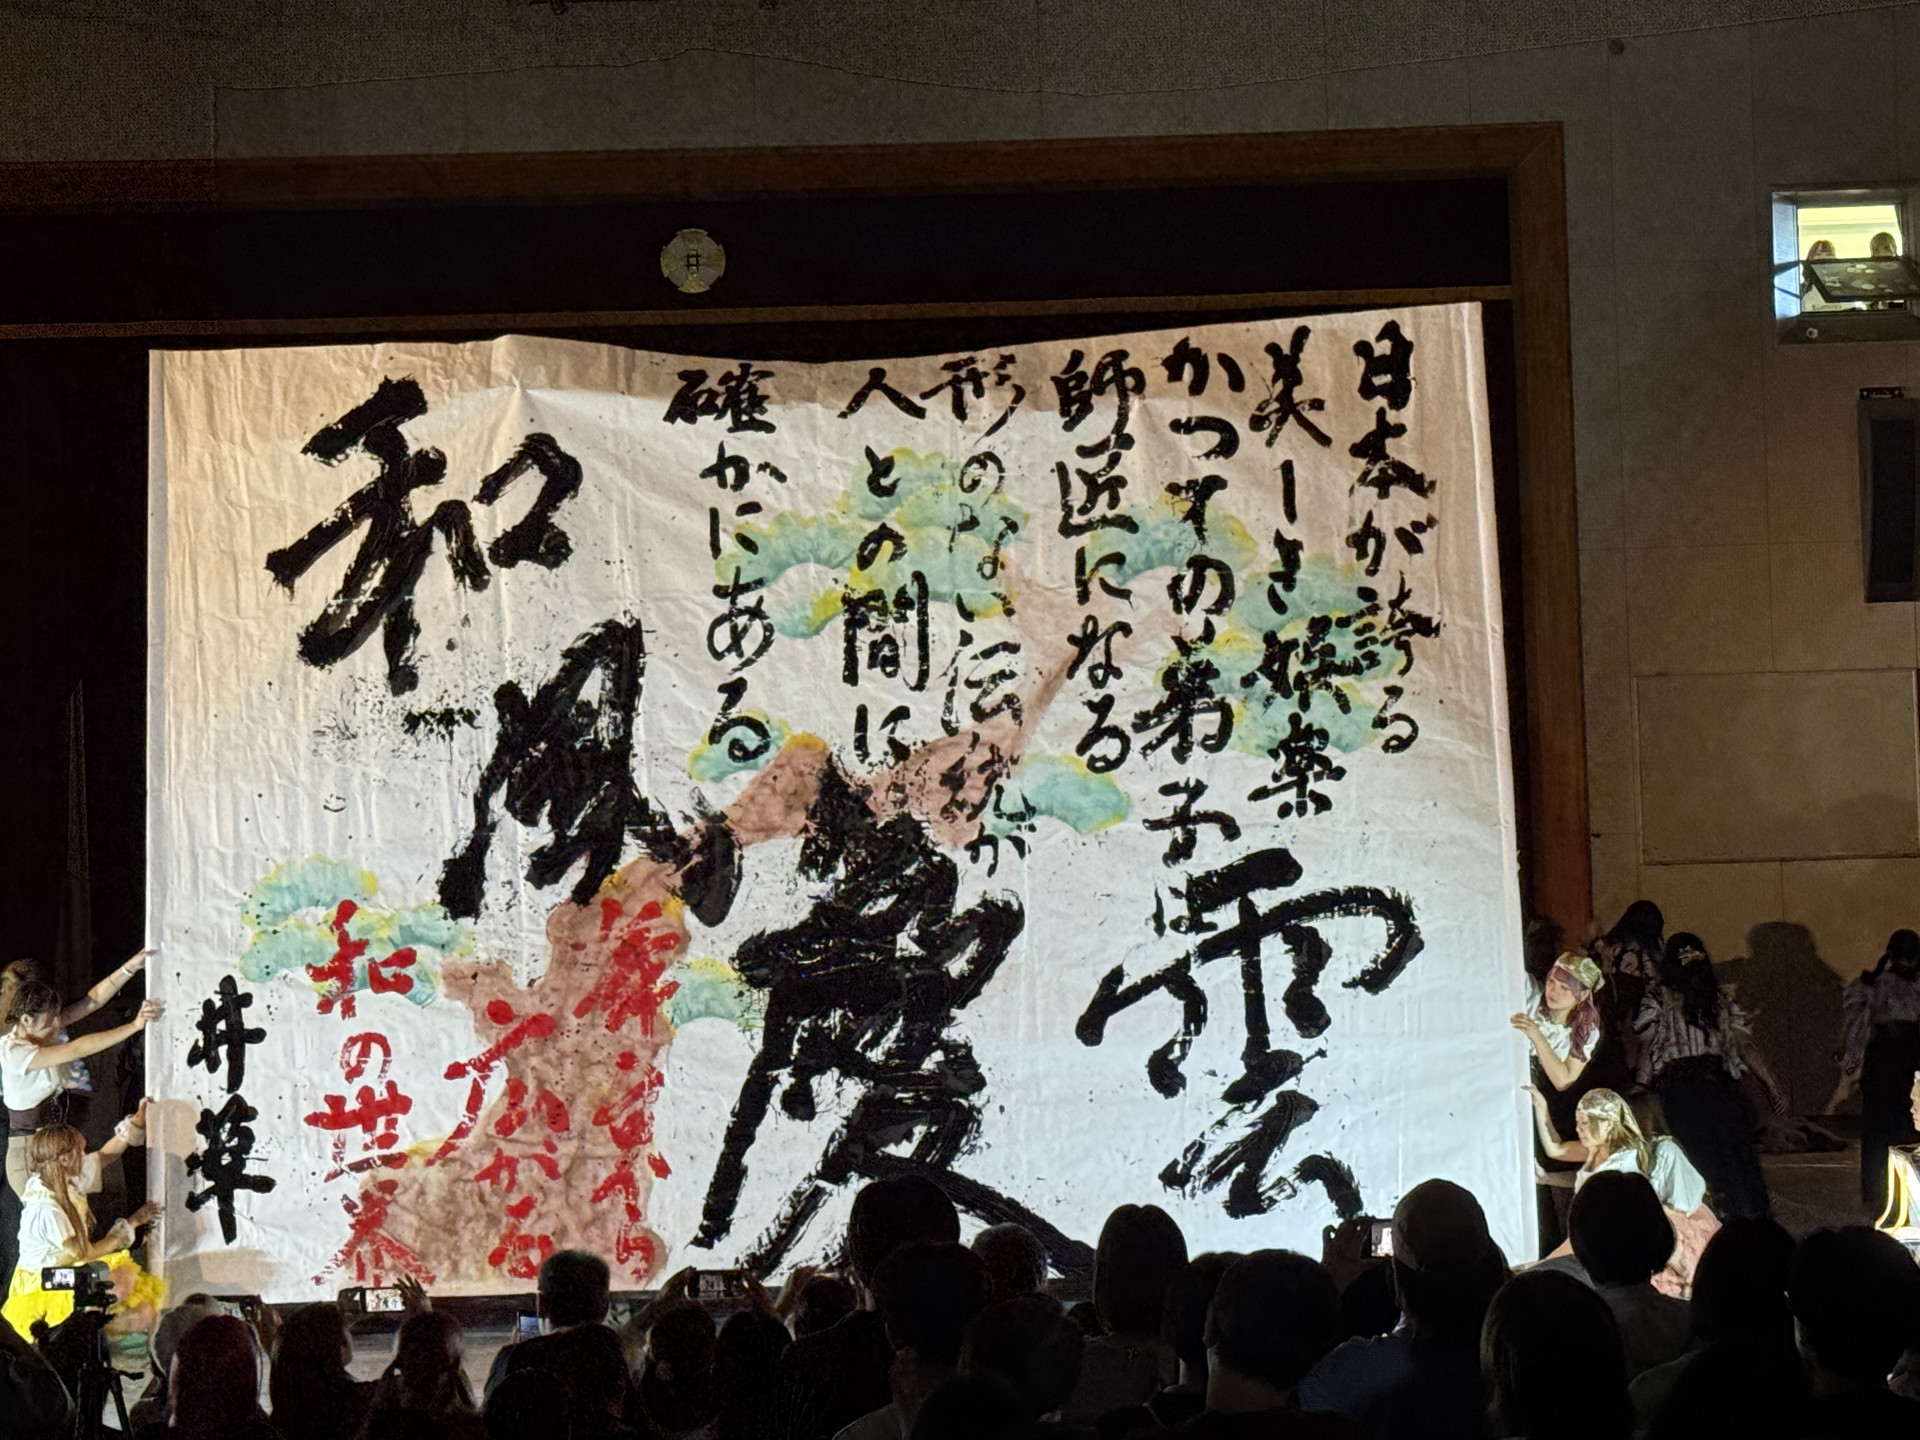 日本が誇る
美しき娯楽
かつての弟子は
師匠になる
形のない伝統が
人との間に
確かにある
雲
慶
和風
ここから
広がる
和の世界
井草